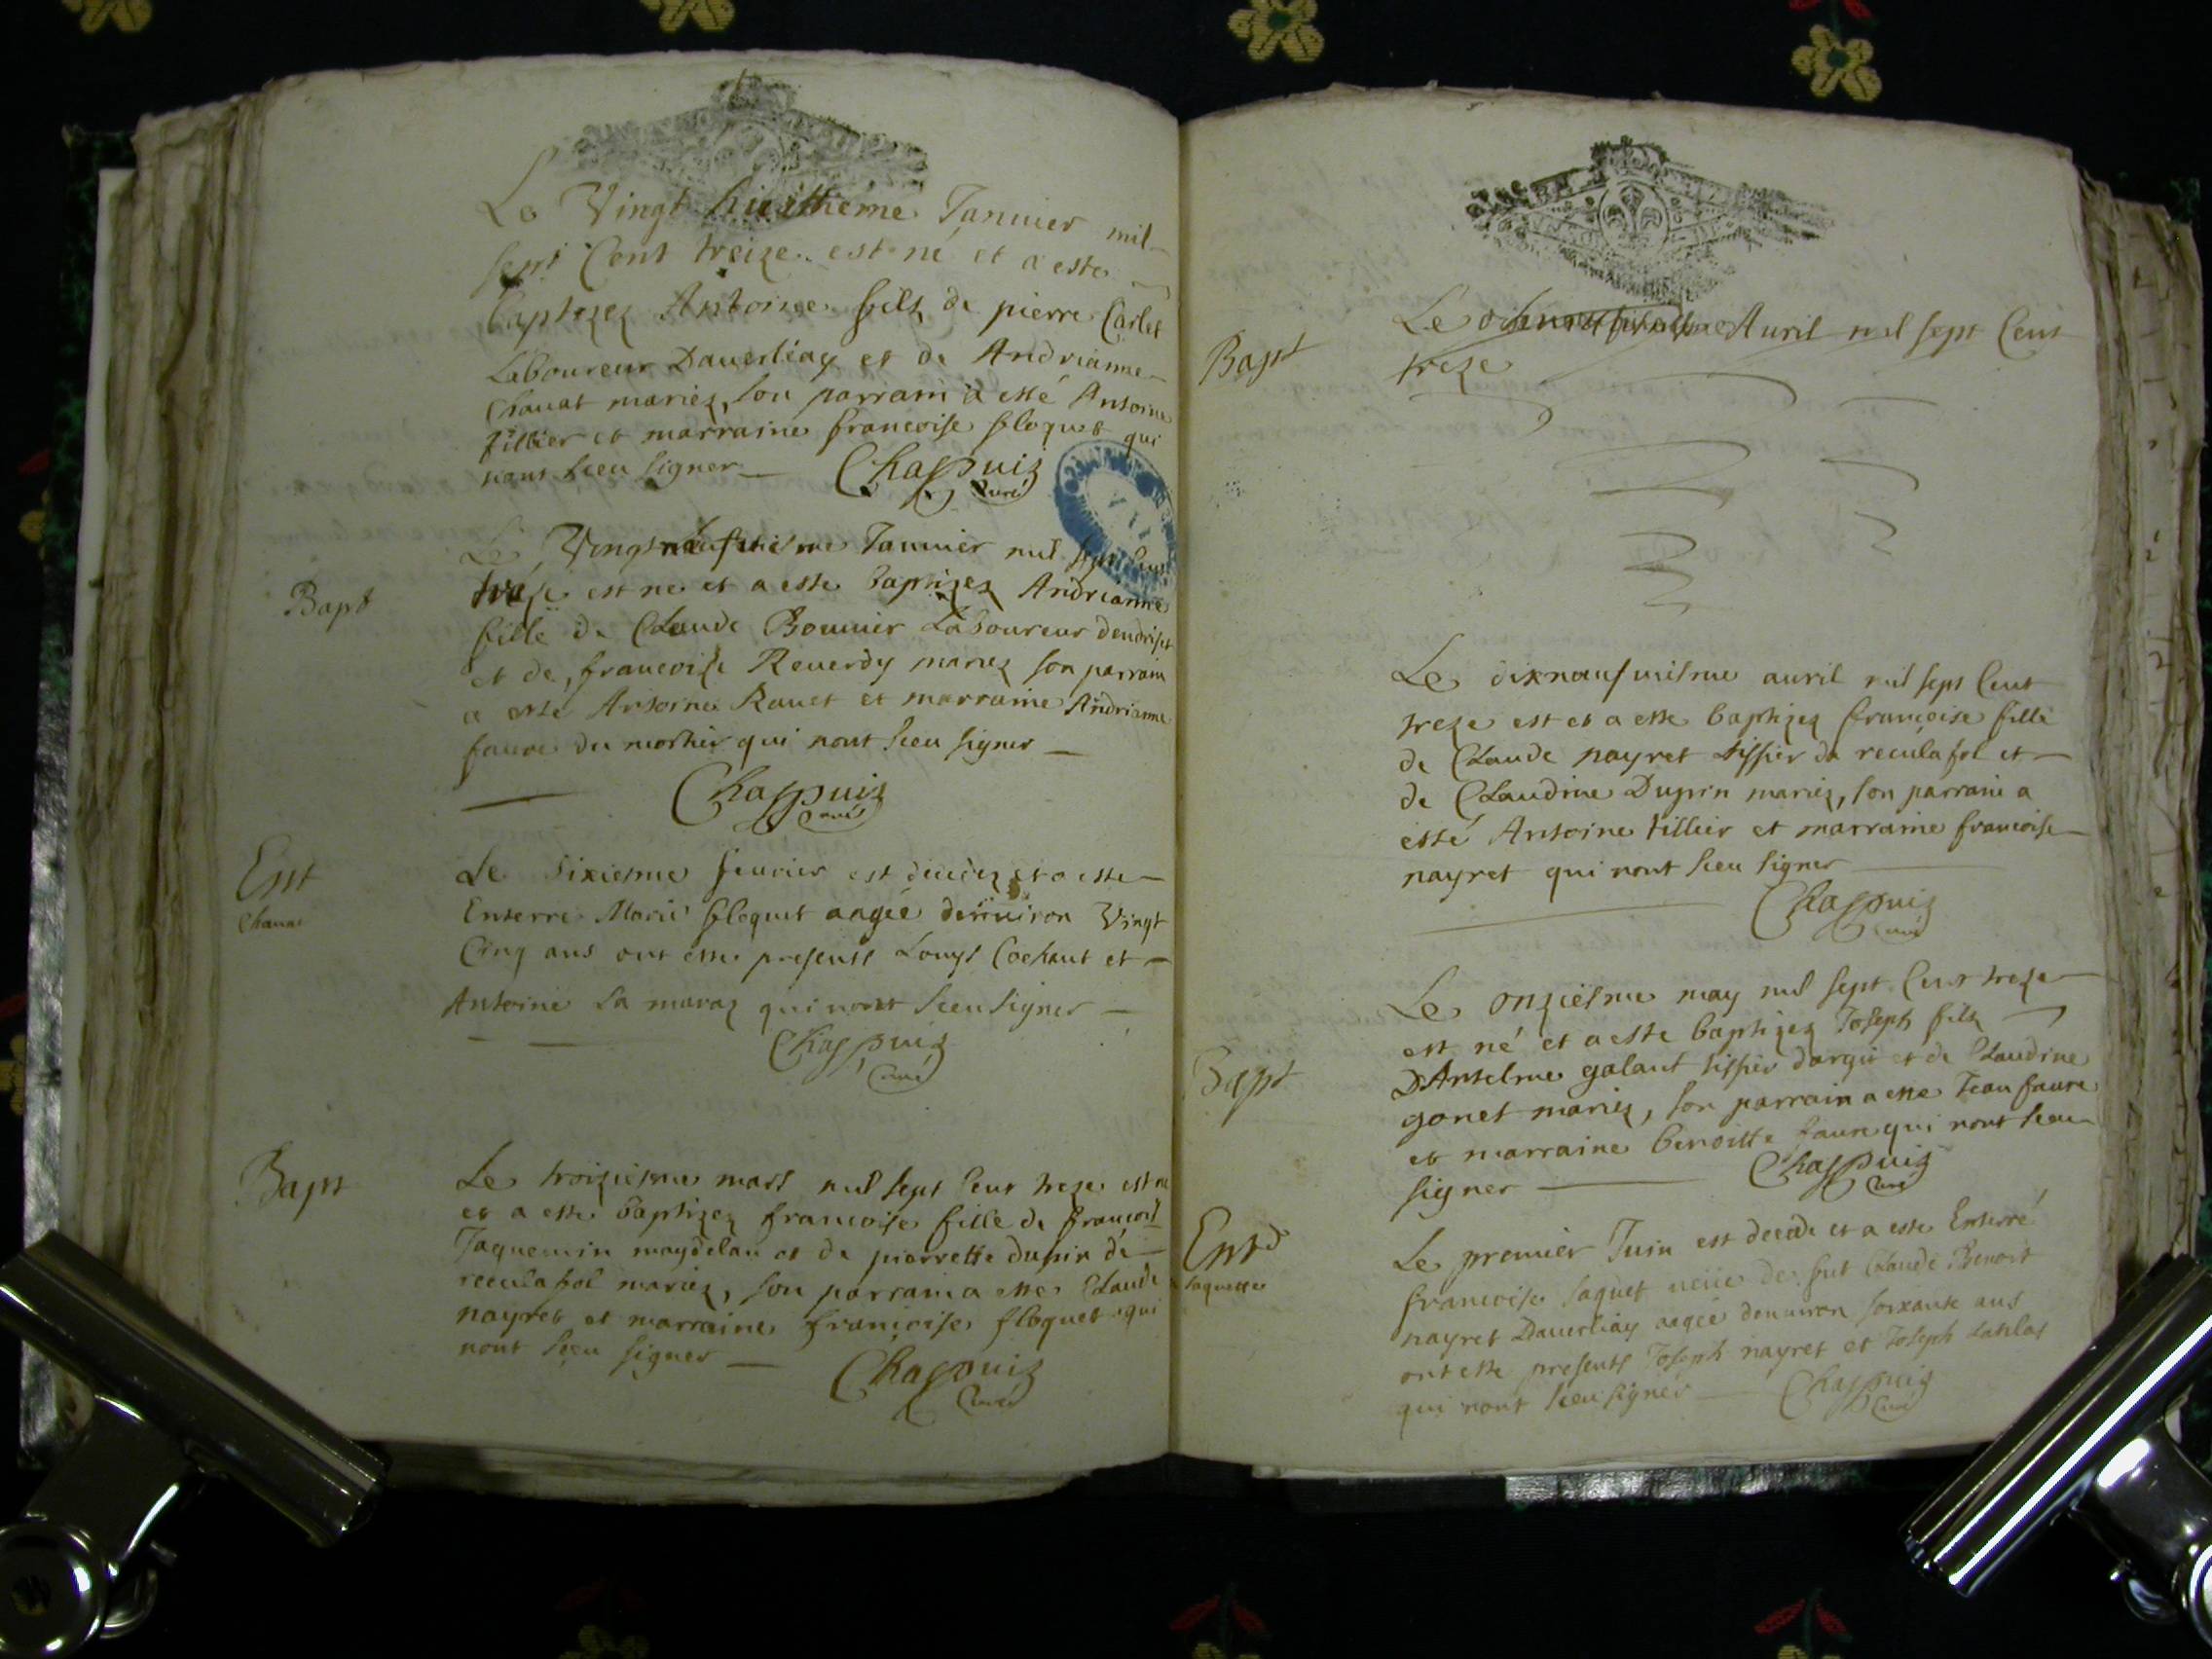 Le Vingt huittiéme Januier mil
sept Cent treize est né et a este
baptizez Antoine fils de pierre Carlet
Laboureur Dauerliay et de Andrianne
Chauat mariez, son parrain a esté Antoine
tillier et marraine francoise floquet qui
nont sceu signer Chappuiz
Curé
Bapt
Le Vingtneufuiesme Januier mil sept Cent
treze est ne et a este baptizez Andrianne
fille de Claude Bouuier Laboureur
et de francoise Reuerdy mariez son parrain
a esté Antoine Rauet et marraine Andrianne
faure du mortier qui nont sceu signer
Chappuiz
Curé
Ent
Chauat
Le sixiesme feurier est decedez et a este
Enterré Marie floquet aagée denuiron Vingt
Cinq ans ont este presents Louys Cochaut et
Antoine La maraz qui nont sceu signer
Chappuiz
Curé
Bapt
Le troiziesme mars mil sept Cent treze est né
et a este baptizez francoise fille de francois
Jaquemin et de pierrette dupin de
reculafol mariez, son parrain a este Claude
nayret et marraine francoise floquet qui
nont sceu signer Chappuiz
Curé
Bapt
Le Auril mil sept Cent
treze
Le dixneufuiesme auril mil sept Cent
treze est et a este baptizez francoise fille
de Claude nayret tissier de reculafol et
de Claudine Dupin mariez, son parrain a
esté Antoine tillier et marraine francoise
nayret qui nont sceu signer
Chappuiz
Curé
Bapt
Le onziesme may mil sept Cent treze
est né et a este baptizez Joseph fils
DAntelme galant tissier dargis et de Claudine
gonet mariez, son parrain a este Jean faure
et marraine benoitte faure qui nont sceu
signer Chappuiz
Curé
Ent
Le premier Juin est decede et a este Enterré
francoise saquet de fut Claude Benoit
nayret Dauerliay aagée denuiron soixante ans
ont este presents Joseph nayret et Joseph
qui nont sceu signer Chappuiz
Curé